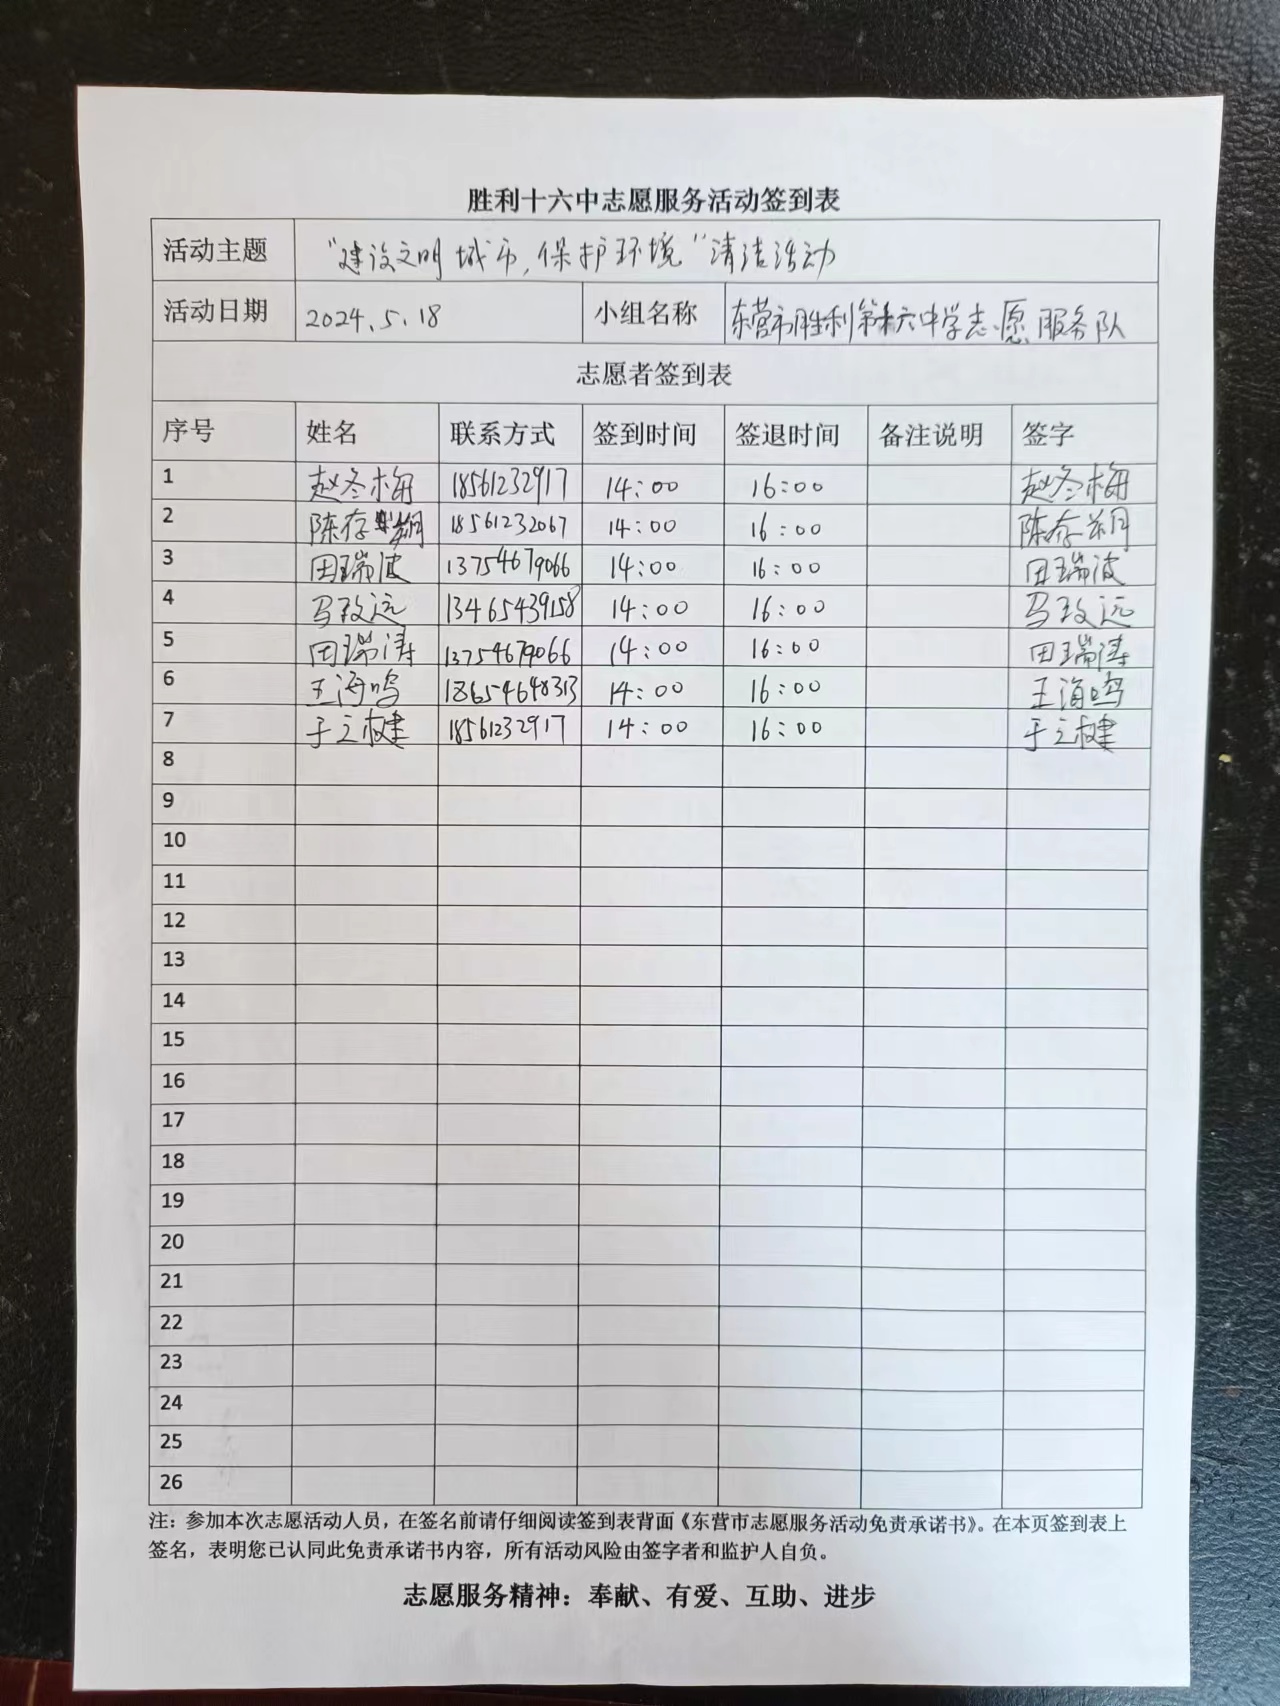 胜利十六中志愿服务活动签到表
活动主题 “建设文明城市,保护环境”清洁活动
活动日期 2024.5.18 小组名称 东营市胜利第十六中学志愿服务队
志愿者签到表
序号 姓名 联系方式 签到时间 签退时间 备注说明 签字
1 赵冬梅 18561232917 14:00 16:00 赵冬梅
2 陈存翔 18561232067 14:00 16:00 陈存翔
3 田瑞波 13754679066 14:00 16:00 田瑞波
4 马致远 13465439158 14:00 16:00 马致远
5 田瑞涛 13754679066 14:00 16:00 田瑞涛
6 王海鸣 18654648313 14:00 16:00 王海鸣
7 于立健 18561232917 14:00 16:00 于立健
8
9
10
11
12
13
14
15
16
17
18
19
20
21
22
23
24
25
26
注:参加本次志愿活动人员,在签名前请仔细阅读签到表背面《东营市志愿服务活动免责承诺书》。在本页签到表上
签名,表明您已认同此免责承诺书内容,所有活动风险由签字者和监护人自负。
志愿服务精神:奉献、有爱、互助、进步